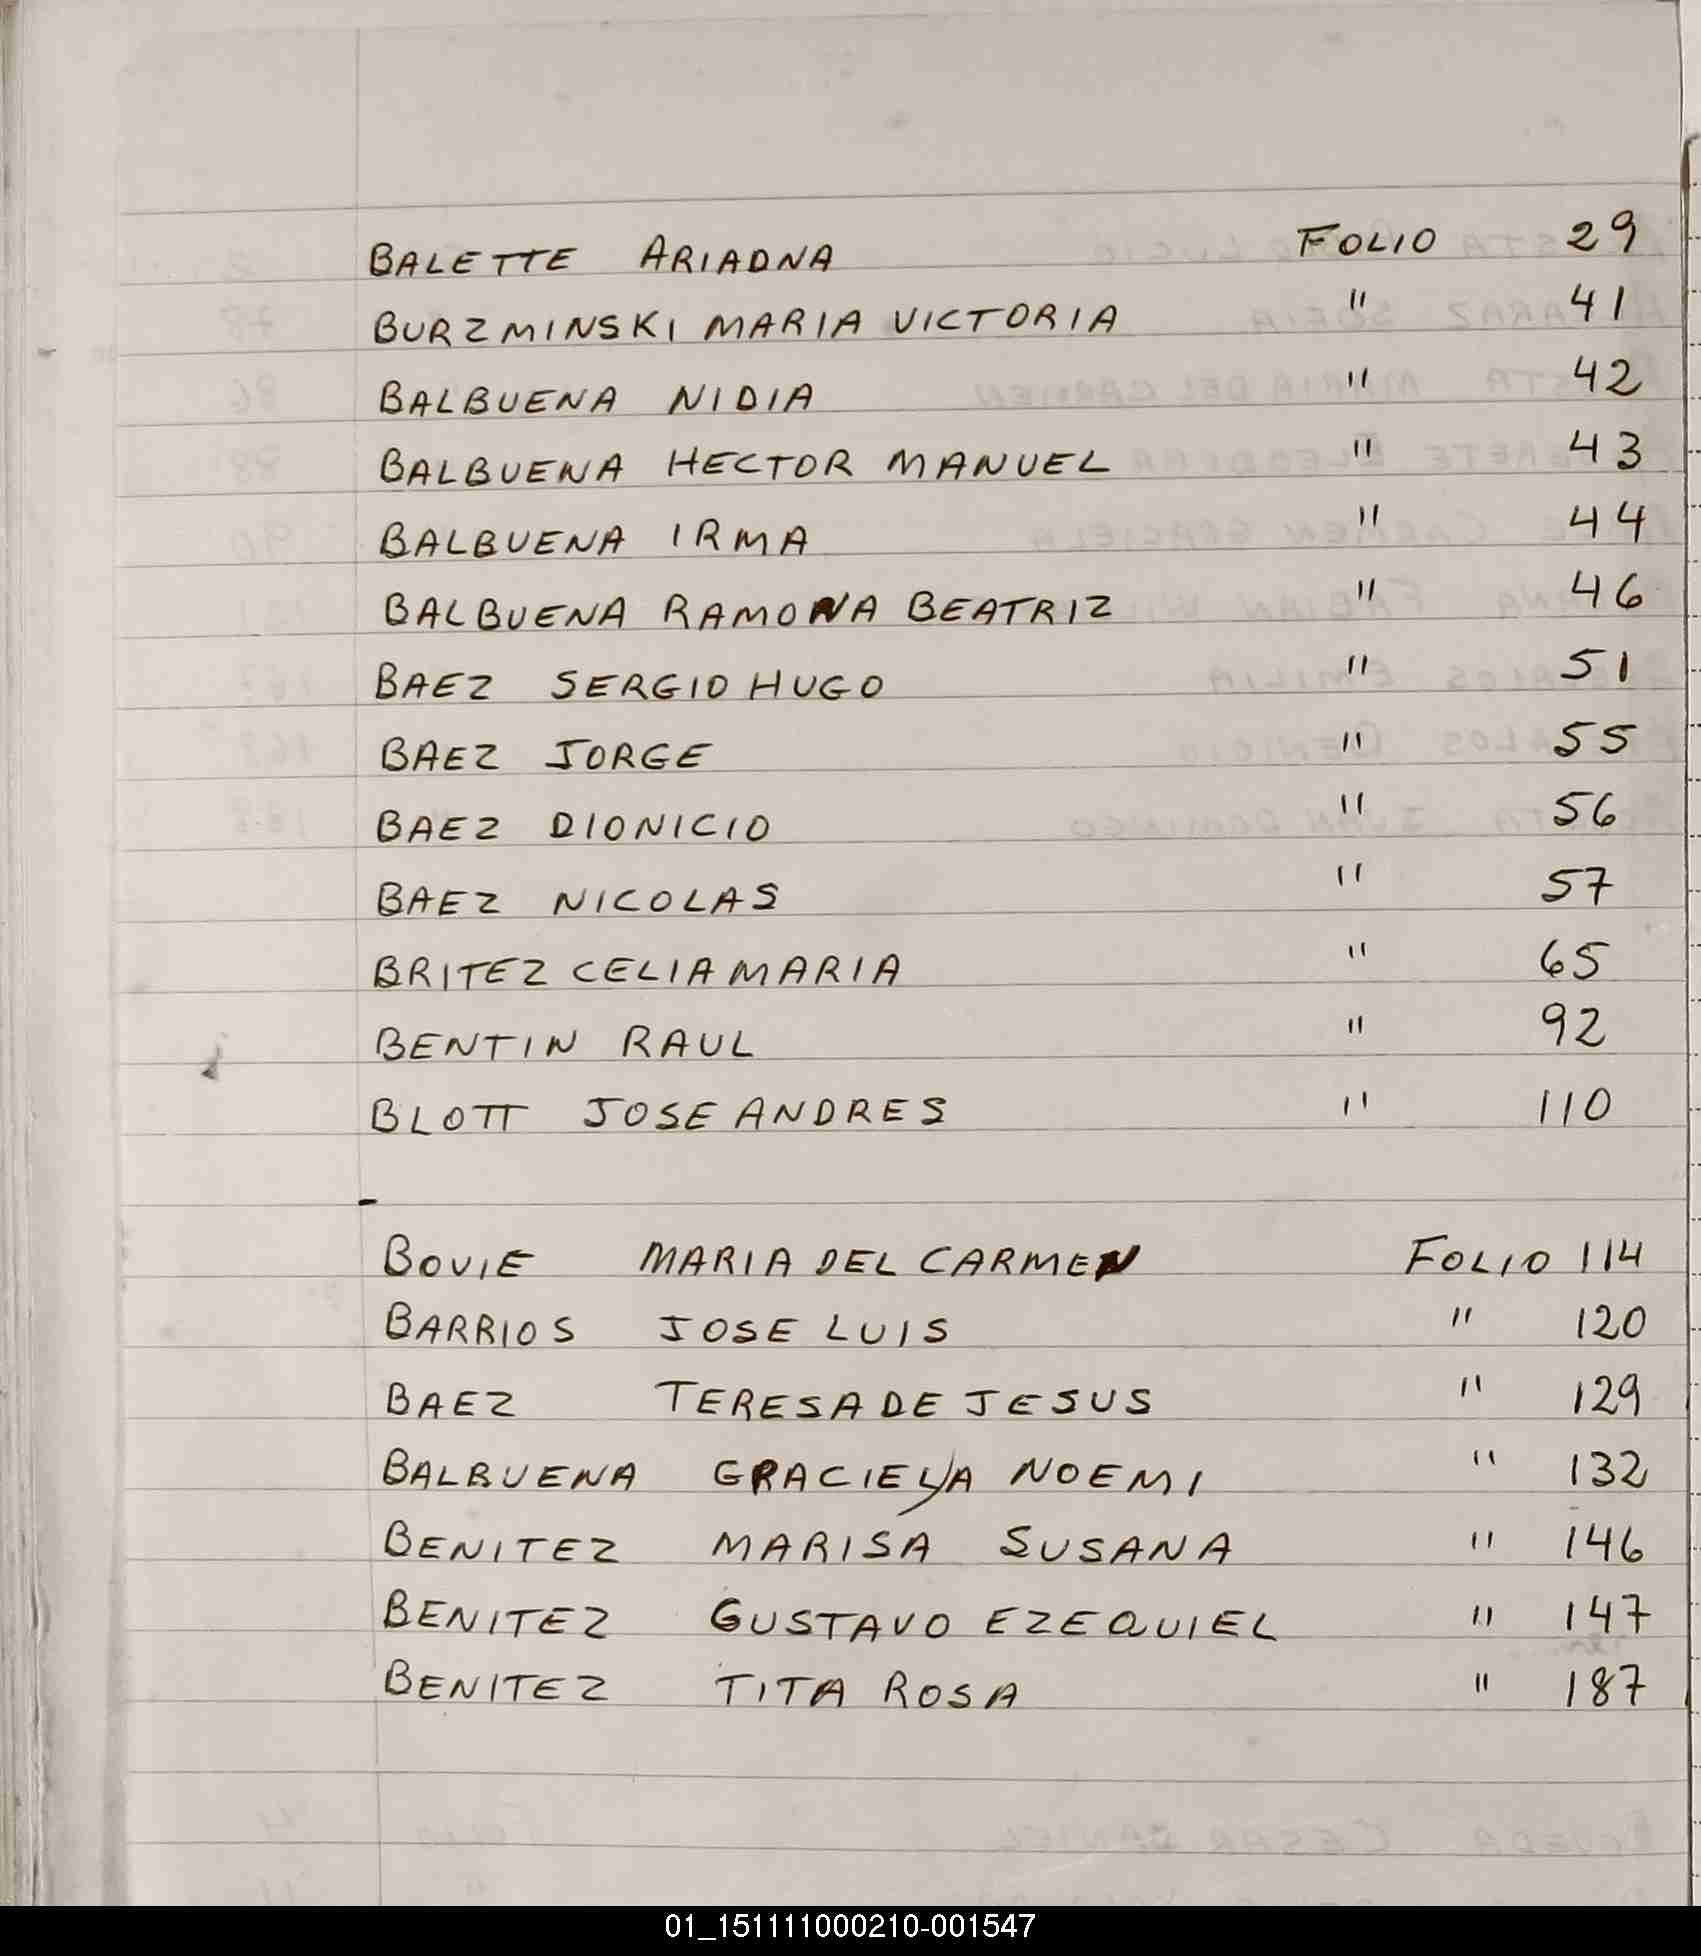 BALETTE ARIADNA FOLIO 29
BURZMINSKI MARIA VICTORIA " 41
BALBUENA NIDIA " 42
BALBUENA HECTOR MANUEL " 43
BALBUENA IRMA " 44
BALBUENA RAMONA BEATRIZ " 46
BAEZ SERGIO HUGO " 51
BAEZ JORGE " 55
BAEZ DIONICIO " 56
BAEZ NICOLAS " 57
BRITEZ CELIA MARIA " 65
BENTIN RAUL " 92
BLOTT JOSE ANDRES " 110
BOVIE MARIA DEL CARMEN FOLIO 114
BARRIOS JOSE LUIS " 120
BAEZ TERESA DE JESUS " 129
BALBUENA GRACIELA NOEMI " 132
BENITEZ MARISA SUSANA " 146
BENITEZ GUSTAVO EZEQUIEL " 147
BENITEZ TITA ROSA " 187
01_151111000210-001547